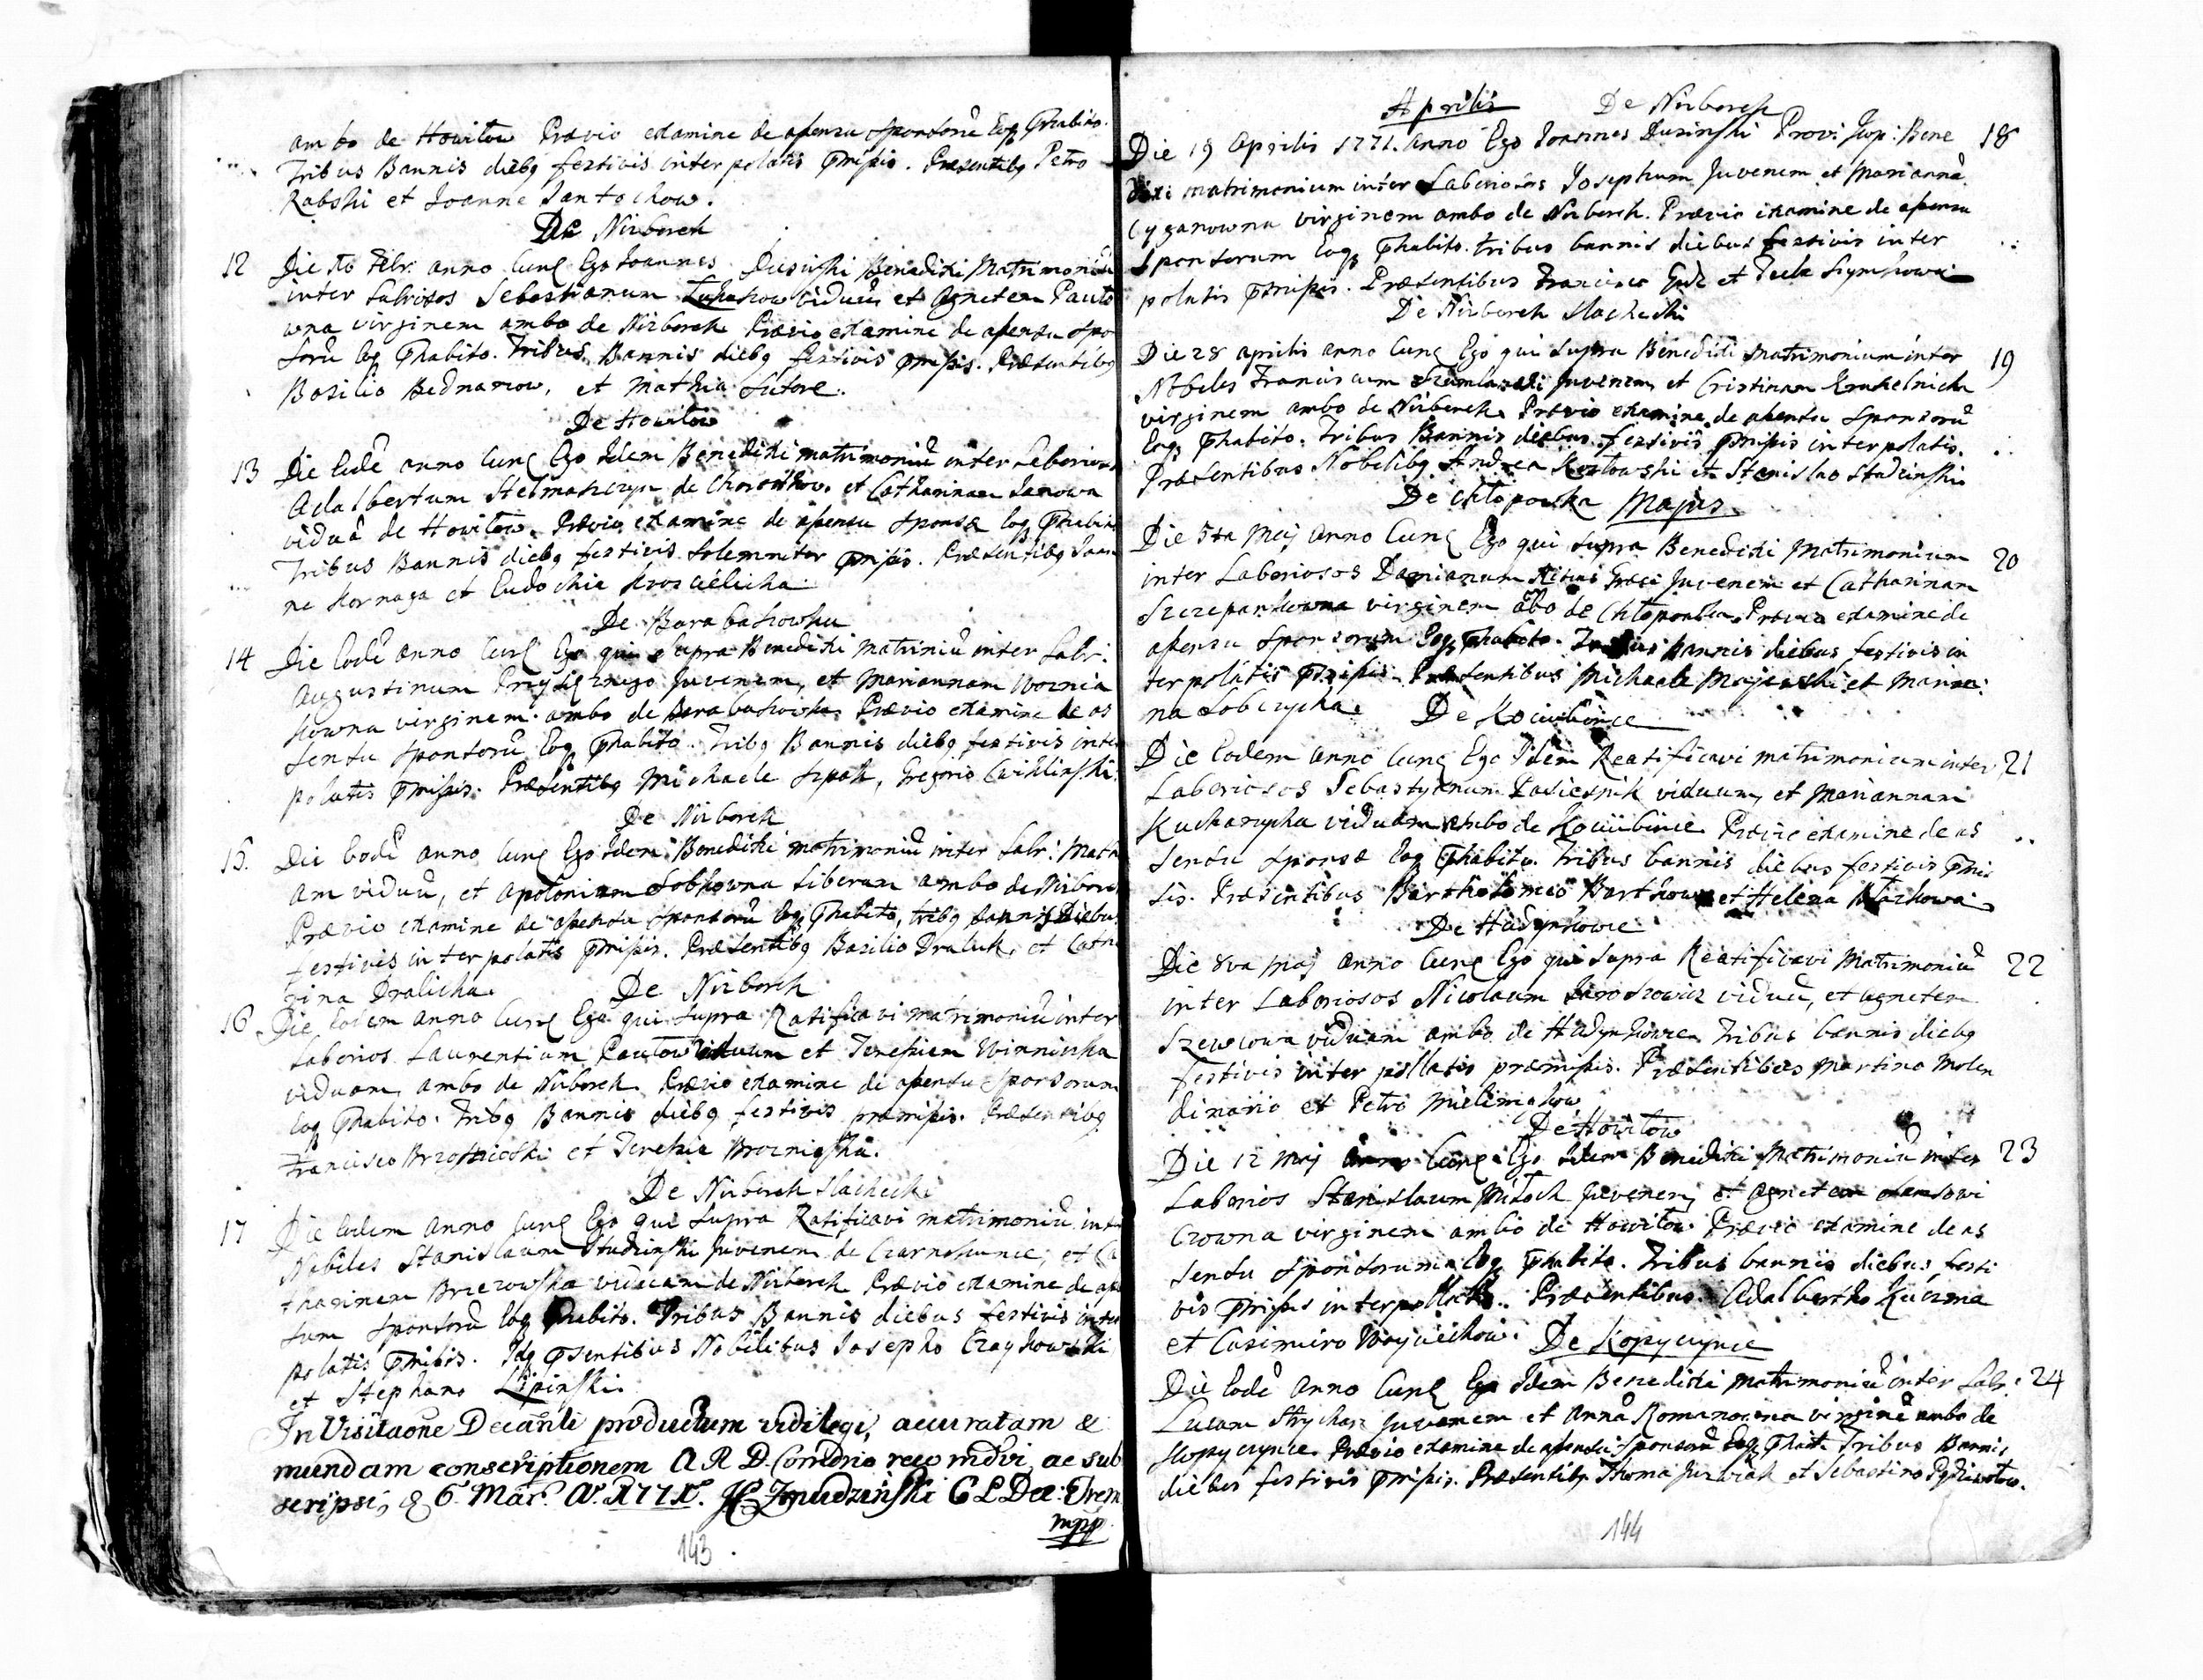 ambo de Howiłow Prævio examine de assensu sponsorū eoq; Phabito.
Tribus Bannis diebq festivis interpolatis Pmissis. Præsentibq Petro
Rabski et Joanne Jantochow.
De Nirborek
12 Die 10 Febr. anno Curę Ego Joannes Dusinski Benedixi Matrimoniū
inter Labriosos Sebastianum Lukasiow viduū et Agnetem Pawlo
wna virginem ambo de Nirborek Prævio examine de assensu spo
sorū eoq Phabito. Tribus Bannis diebq festivis Pmissis. Præsentibq
Basilio Bednarzow, et Mathia Sutore.
De Howiłow
13 Die Eodē anno Curę Ego Idem Benedixi matrimoniū inter Laborios
Adalbertum Stelmaszczyn de et Catharinam Janowa
viduā de Howiłow. Prævio examine de assensu sponsæ eoq Phabito
Tribus Bannis diebq festivis solemniter Pmissis. Præsentibq Joan
ne Kornaga et Eudochia
De Barabaszowka
14 Die Eodē anno Curę Ego qui supra Benedixi matriniū inter Labr:
Augustinum juvenem, et Mariannam Woznia
kowna virginem ambo de Barabaszowka Prævio examine de as
sensu sponsorū Eoq Phabito. Tribq Bannis diebq festivis inter
polatis Pmissis. Præsentibq Michaele Szpak, Gregorio Cwiklinski.
De Nirborek
15. Die Eodē anno Curę Ego Idem Benedixi matrimoniū inter Labr: Math
am viduū, et Apoloniam Sobkowna liberam ambo de Nirborek
Prævio examine de assensu sponsorū eoq Phabito, tribq bannis Diebus
festivis interpolatis Pmissis. Præsentibq Basilio Draluk, et Catha
rina Dralicha.
De Nirborek
16 Die Eodem anno Curę Ego qui supra Ratificavi matrimoniū inter
Laborios Laurentium Pawlow viduum et Teressiam Winnicka
viduam ambo de Nirborek Prævio examine de assensu Sponsorum
eoq Phabito. Tribq Bannis diebq festivis præmissis. Præsentibq
Francisco et Teressia
De Nirborek slachecki
17 Die Eodem anno Curę Ego qui supra Ratificavi matrimoniū inter
Nobiles Stanislaum Studzinski juvenem de Czarnokunce, et Ca
tharinam Brzezowska viduam de Nirborek Prævio examine de as
sum sponsorū eoq Phabito. Tribus Bannis diebus festivis inter
polatis Pmissis. Idq Psentibus Nobilibus Josepho Czaykowski
et Stephano Lipinski.
In Visitaõne Decanli productum vidi legi, accuratam &
mundam conscriptionem A R D. Comdrio recomdvi, ac sub
scripsi, d 6 Mar. Aº. 1771º. C L Dec: Trem
mpp
143
Aprilis De Nirborek
Die 19 Aprilis 1771. Anno Ego Joannes Dusinski Provi: Bene 18
dixi matrimonium inter Laboriosos Josephum juvenem et Mariannā
Cyganowna virginem ambo de Nirborek. Prævio examine de assensu
sponsorum Eoq Phabito. tribus bannis diebus festivis inter
polatis Pmissis. Præsentibus Francisco et Tecla Szymkowa
De Nirborek slachecki
Die 28 aprilis anno Curę Ego qui supra Benedixi Matrimonium inter 19
Nobiles Franciscum juvenem et Cristinam Kruhelnicka
virginem ambo de Nirborek. Prævio examine de assensu sponsorū
Eoq Phabito. Tribus Bannis diebus festivis Pmissis interpolatis.
Præsentibus Nobilibq Andrea Kozlowski et Stanislao Studzinski
De Chłopowka Majus
Die 5ta Maj anno Curę Ego qui supra Benedixi Matrimonium 20
inter Laboriosos Damianum Ritus Græci juvenem et Catharinam
Szczepankowna virginem ābo de Chłopowka. Prævio examine de
assensu sponsorum Eoq Phabito. Tribus Bannis diebus festivis in
terpolatis Pmissis. Præsentibus Michaele Majewski et Marian:
na Sobczycha. De Kociubince
Die Eodem anno Curę Ego Idem Reatificavi matrimonium inter 21
Laboriosos Sebastyanum Pasiesnik viduum, et Mariannam
Kucharzycha viduam ambo de Kociubince Prævio examine de as
sensu sponsæ eoq Phabito. Tribus bannis diebus festivis Pmis
sis. Præsentibus Bartholomeo Bartkow et Helena Błazkowa
De Hadynkowce
Die 8va Maj anno Curę Ego qui supra Reatificavi Matrimoniū 22
inter Laboriosos Nicolaum Jaroszowicz viduū, et Agnetem
Szewcowa viduam ambo de Hadynkowce Tribus bannis diebq
festivis inter pollatis præmissis. Præsentibus Martino Molen
dinario et Petro
De Howiłow
Die 12 Maj anno Curę Ego Idem Benedixi Matrimoniū inter 23
Laborios Stanislaum Mitoch juvenem, et Agnetem
crowna virginem ambo de Howiłow Prævio examine de as
sensu sponsorum eoq Phabito. Tribus bannis diebus festi
vis Pmissis interpollatis. Præsentibus Adalbertho Kuczma
et Casimiro Woyciechow. De Kopyczynce
Die Eodē anno Curę Ego Idem Benedixi Matrimoniū inter Labr: 24
Lucam Strychar juvenem et Annā Romanowna virginē ambo de
Kopyczynce. Prævio examine de assensu sponsorū Eoq Phabit. Tribus Bannis
diebus festivis Pmissis. Præsentibq Thoma et Sebastiano
144